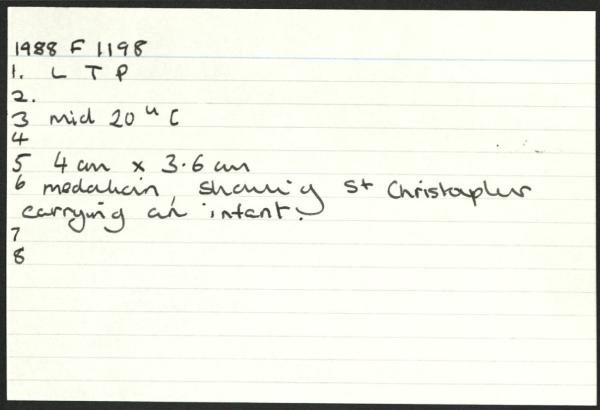 1988 F 1198
1. L T P
2.
3 mid 20th C
4
5 4 cm x 3.6 cm
6 medallion, showing St Christopher
carrying an infant.
7
8